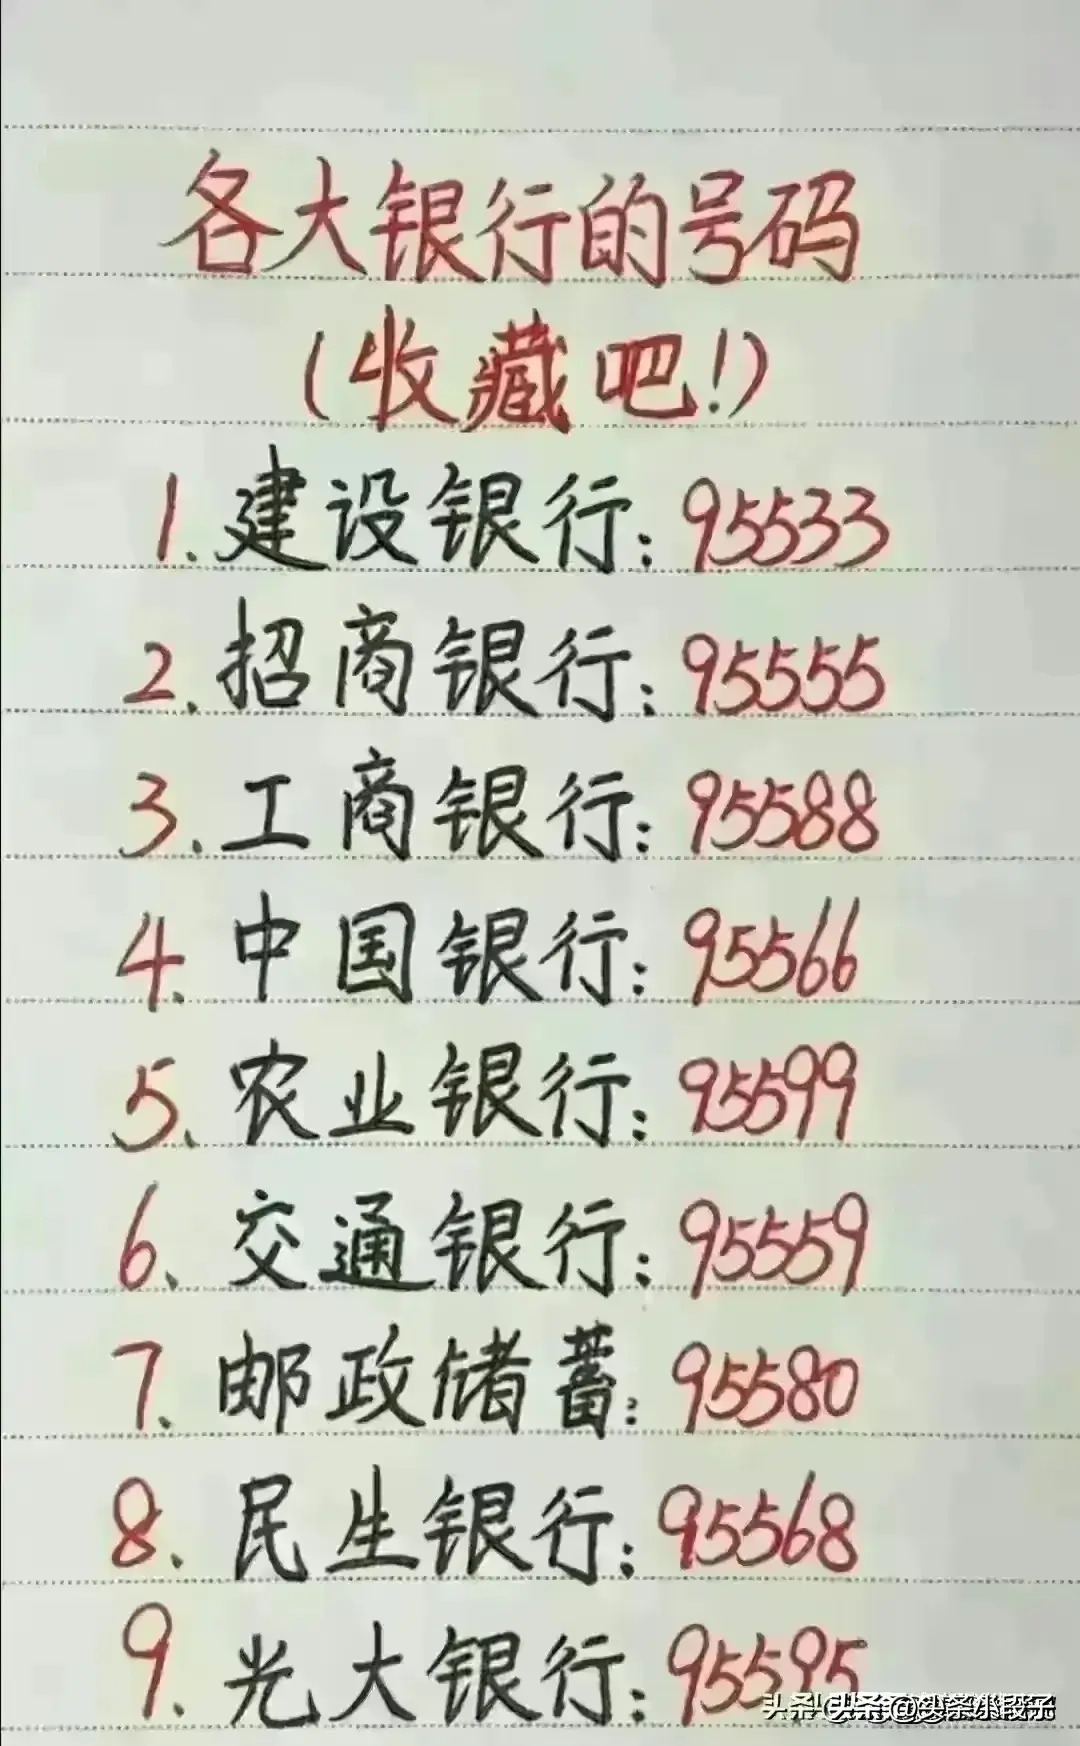 各大银行的号码
(收藏吧!)
1.建设银行:95533
2.招商银行:95555
3.工商银行:95588
4.中国银行:95566
5.农业银行:95599
6.交通银行:95559
7.邮政储蓄:95580
8.民生银行:95568
9.光大银行:95595
头条 @头条小段子